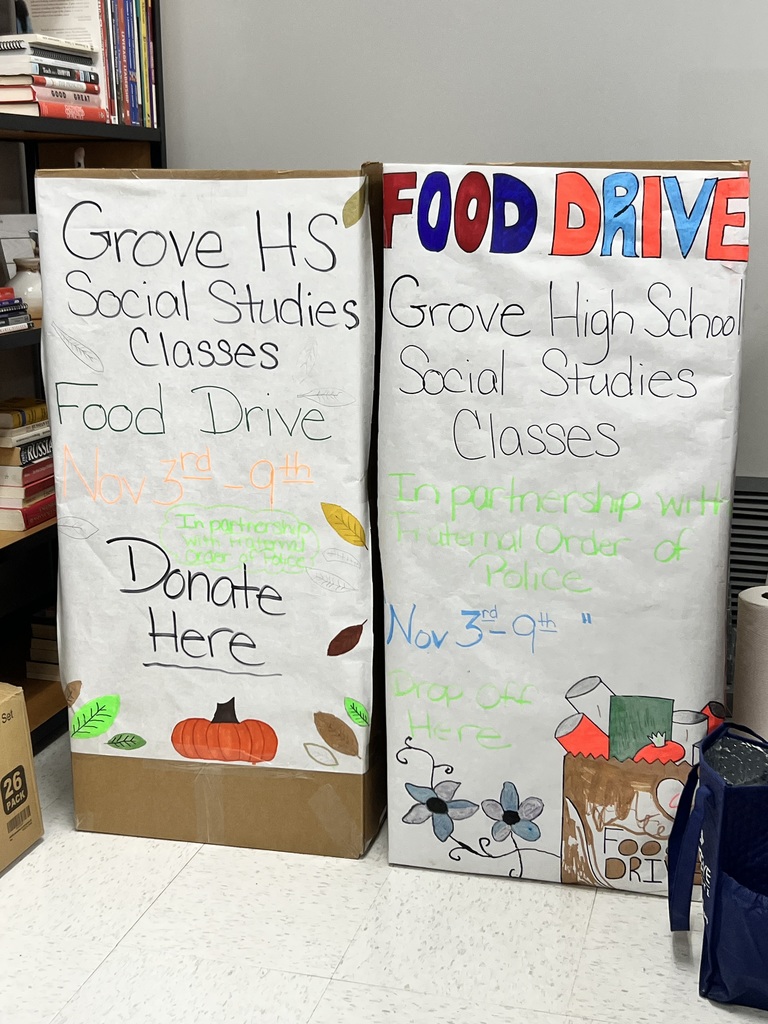 Grove HS
Social Studies
Classes
Food Drive
Nov 3rd - 9th
In partnership
with Fraternal
Order of Police
Donate
Here
FOOD DRIVE
Grove High School
Social Studies
Classes
In partnership with
Fraternal Order of
Police
Nov 3rd - 9th "
Drop Off
Here
FOOD
DRIV
GOOD GREAT
RUSSIA
Set
26
PACK